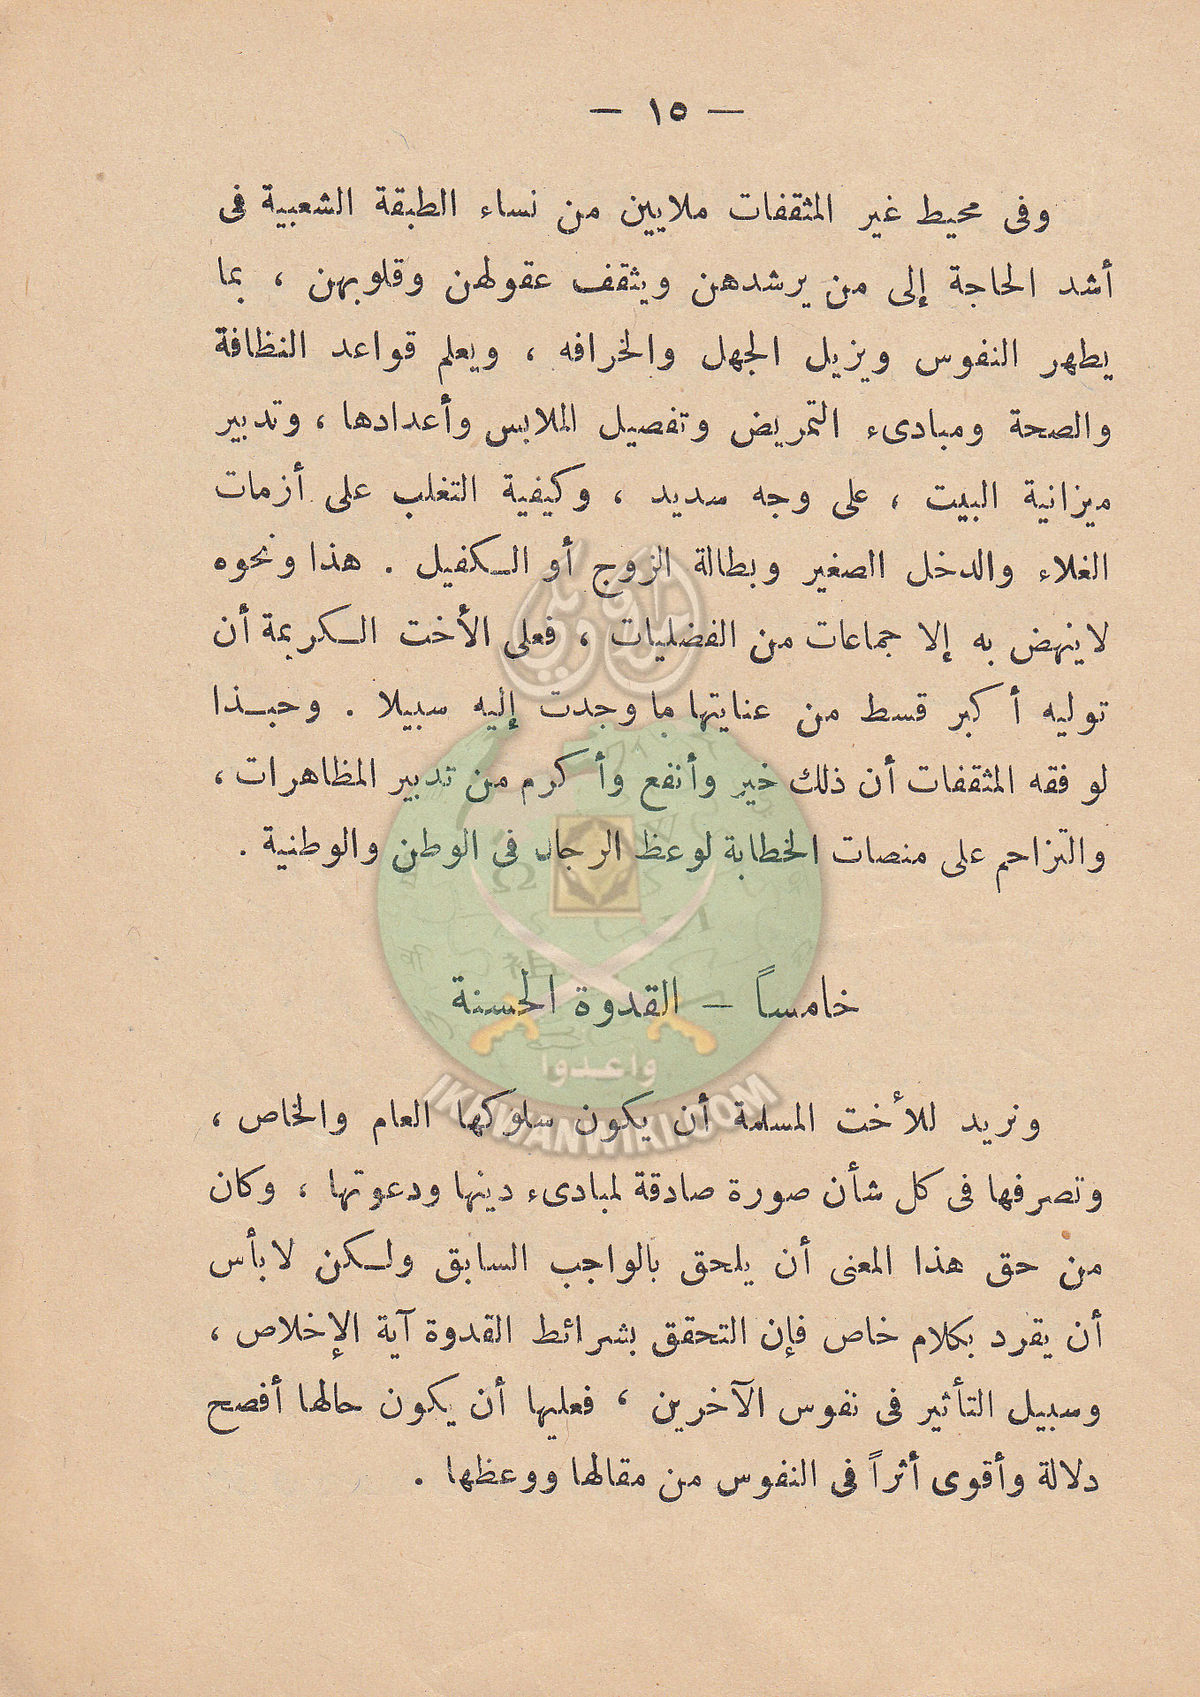 — ١٥ —
وفى محيط غير المثقفات ملايين من نساء الطبقة الشعبية فى
أشد الحاجة إلى من يرشدهن ويثقف عقولهن وقلوبهن ، بما
يطهر النفوس ويزيل الجهل والخرافه ، ويعلم قواعد النظافة
والصحة ومبادىء التمريض وتفصيل الملابس وأعدادها ، وتدبير
ميزانية البيت ، على وجه سديد ، وكيفية التغلب على أزمات
الغلاء والدخل الصغير وبطالة الزوج أو الكفيل . هذا ونحوه
لاينهض به إلا جماعات من الفضليات ، فعلى الأخت الكريمة أن
توليه أكبر قسط من عنايتها ما وجدت إليه سبيلا . وحبذا
لو فقه المثقفات أن ذلك خير وأنفع وأكرم من تدبير المظاهرات ،
والتزاحم على منصات الخطابة لوعظ الرجال فى الوطن والوطنية .
خامساً — القدوة الحسنة
واعدوا
IKHWANWIKI.COM
ونريد للأخت المسلمة أن يكون سلوكها العام والخاص ،
وتصرفها فى كل شأن صورة صادقة لمبادىء دينها ودعوتها ، وكان
من حق هذا المعنى أن يلحق بالواجب السابق ولكن لابأس
أن يفرد بكلام خاص فإن التحقق بشرائط القدوة آية الإخلاص ،
وسبيل التأثير فى نفوس الآخرين ، فعليها أن يكون حالها أفصح
دلالة وأقوى أثراً فى النفوس من مقالها ووعظها .